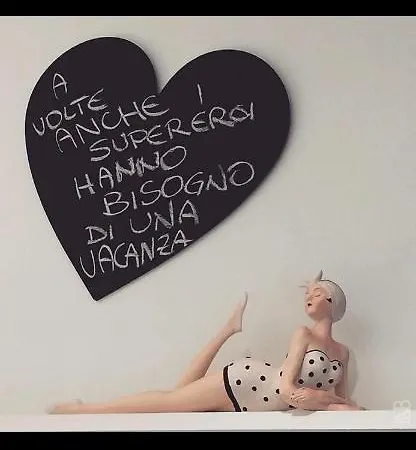 A
VOLTE
ANCHE I
SUPEREROI
HANNO
BISOGNO
DI UNA
VACANZA